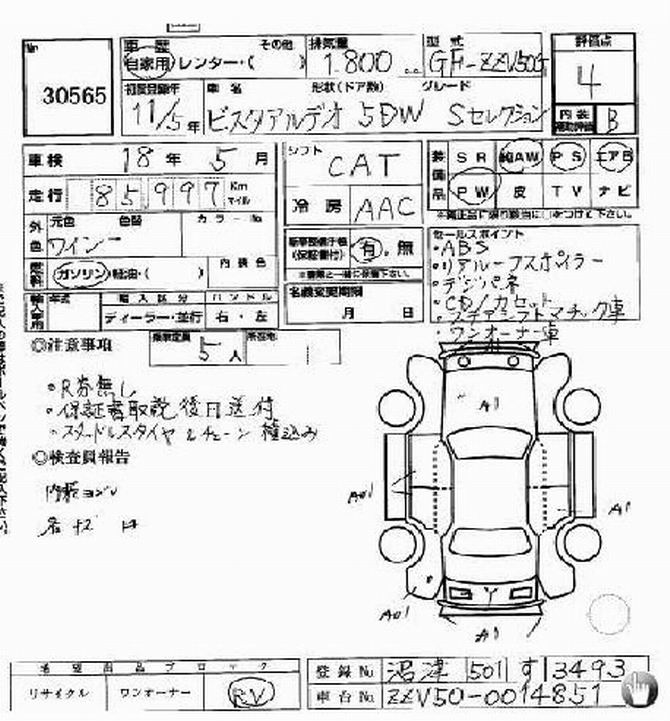 No.
30565
車歴 その他 排気量 型式 評価点
自家用 レンター・( ) 1.800 cc GF-ZZV50G 4
初度登録年 車名 形状(ドア数) グレード
11/5年 ビスタアルデオ 5DW Sセレクション 内装 B
車検 18年 5月
走行 85,997 Km マイル
シフト CAT
冷房 AAC
装備品 SR 純AW PS エアB
PW 皮 TV ナビ
外色 元色 色替 カラーNo.
ワイン
燃料 ガソリン・軽油・( ) 内装色
(保証書付) 有・無
名義変更期限
月 日
輸入車用 年式 輸入区分 ハンドル
ディーラー・並行 右・左
乗車定員 5人
セールスポイント
・ABS
・リアルーフスポイラー
・デジパネ
・CD/カセット
・ステアシフトマチック車
・ワンオーナー車
◎注意事項
・R券無し
・保証書取説後日送付
・スタッドレスタイヤ&チェーン積込み
◎検査員報告
内装ヨゴレ
A1
A01
A1
A01
A1
リサイクル ワンオーナー RV
登録No. 沼津 501 す 3493
車台No. ZZV50-0014851